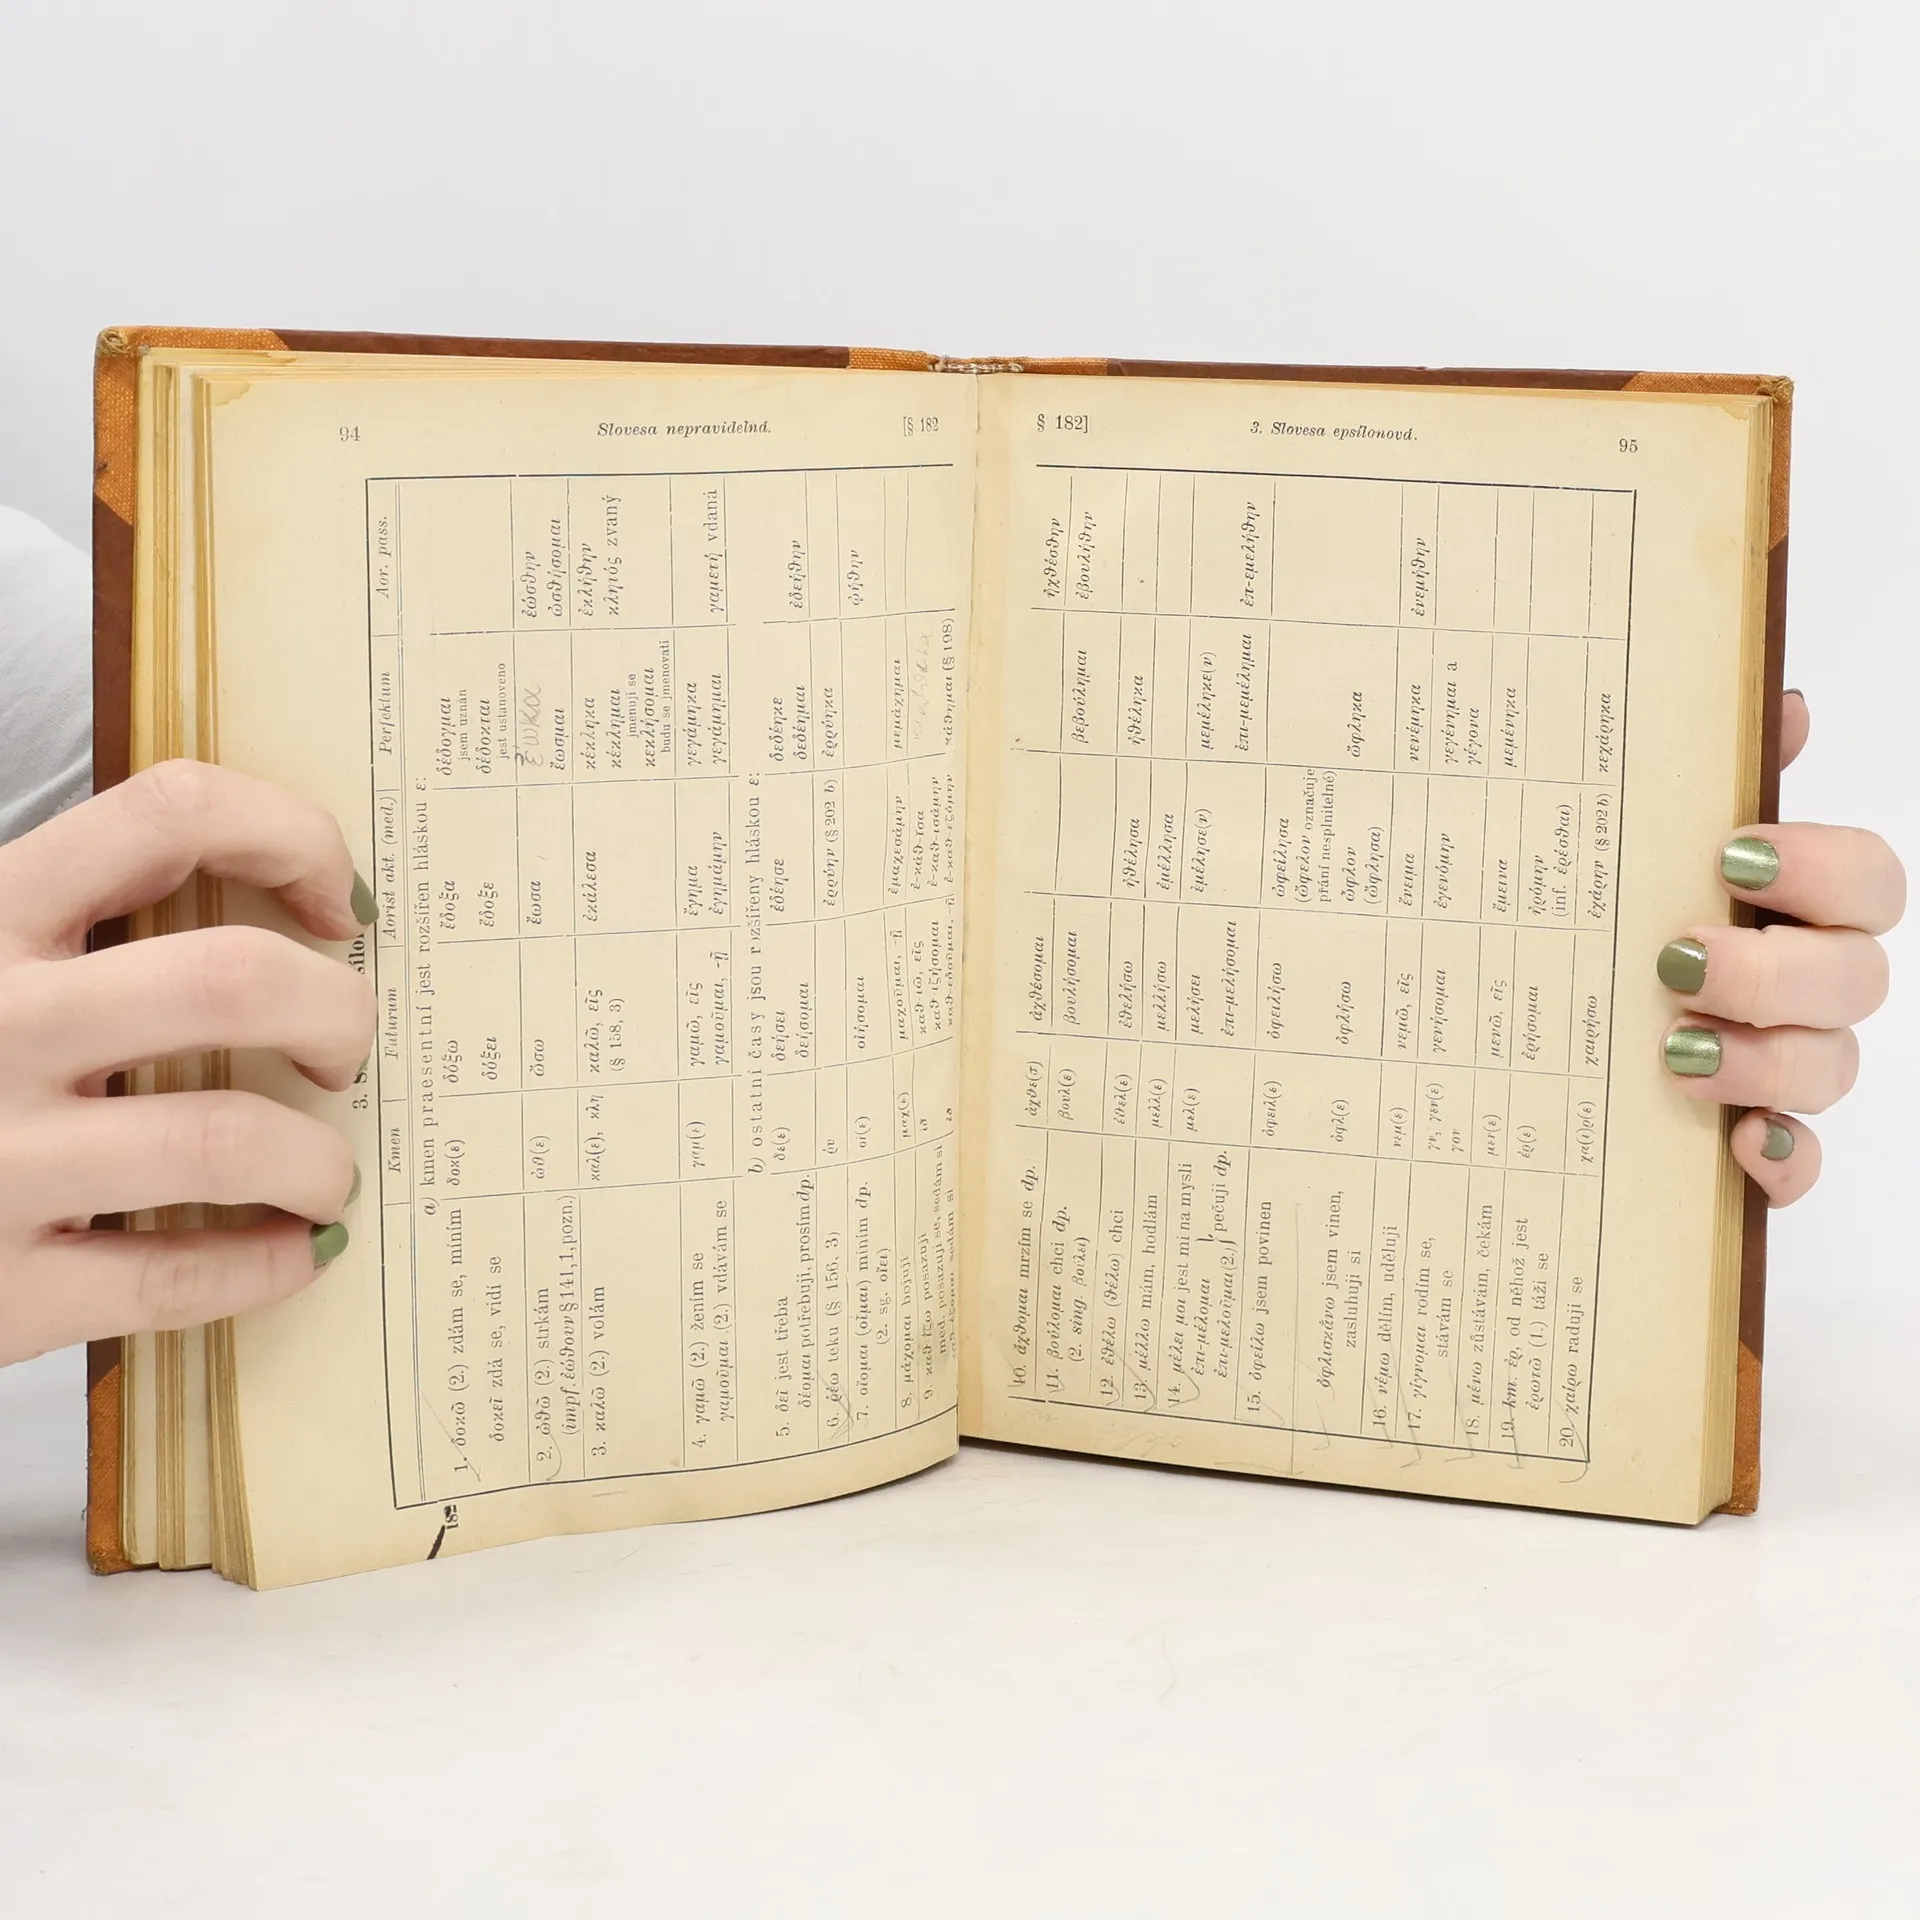 94
Slovesa nepravidelná.
[§ 182
182
3. S
Kmen Futurum Aorist akt. (med.) Perfektum Aor. pass.
a) kmen praesentní jest rozšířen hláskou ε:
1. δοκῶ (2.) zdám se, míním δοκ(ε) δόξω ἔδοξα δέδογμαι
jsem uznán
δοκεῖ zdá se, vidí se δόξει ἔδοξε δέδοκται
jest ustanoveno
2. ὠθῶ (2.) strkám ὠθ(ε) ὤσω ἔωσα ἔωκα ἐώσθην
(impf. ἐώθουν § 141, 1, pozn.) ἔωσμαι ὠσθήσομαι
3. καλῶ (2.) volám καλ(ε), κλη καλῶ, εῖς ἐκάλεσα κέκληκα ἐκλήθην
(§ 158, 3) κέκλημαι κλητός zvaný
jmenuji se
κεκλήσομαι
budu se jmenovati
4. γαμῶ (2.) žením se γαμ(ε) γαμῶ, εῖς ἔγημα γεγάμηκα
γαμοῦμαι (2.) vdávám se γαμοῦμαι, -ῇ ἐγημάμην γεγάμημαι γαμετή vdaná
b) ostatní časy jsou rozšířeny hláskou ε:
5. δεῖ jest třeba δε(ε) δεήσει ἐδέησε δεδέηκε
δέομαι potřebuji, prosím dp. δεήσομαι δεδέημαι ἐδεήθην
6. ῥέω teku (§ 156, 3) ῥυ ἐρρύην (§ 202 b) ἐρρύηκα
7. οἴομαι (οἶμαι) míním dp. οἰ(ε) οἰήσομαι ᾠήθην
(2. sg. οἴει)
8. μάχομαι bojuji μαχ(ε) μαχοῦμαι, -ῇ ἐμαχεσάμην μεμάχημαι
9. καθ-ίζω posazuji ἱδ καθ-ιῶ, εῖς ἐ-κάθ-ισα
med. posazuji se, sedám si καθ-ιζήσομαι ἐ-καθ-ισάμην
καθ-έζομαι sedám si ἑδ καθ-εδοῦμαι, -ῇ ἐ-καθ-εζόμην κάθημαι (§ 198)
§ 182]
3. Slovesa epsílonová.
95
10. ἄχθομαι mrzím se dp. ἀχθε(σ) ἀχθέσομαι ἠχθέσθην
11. βούλομαι chci dp. βουλ(ε) βουλήσομαι βεβούλημαι ἐβουλήθην
(2. sing. βούλει)
12. ἐθέλω (θέλω) chci ἐθελ(ε) ἐθελήσω ἠθέλησα ἠθέληκα
13. μέλλω mám, hodlám μελλ(ε) μελλήσω ἐμέλλησα
14. μέλει μοι jest mi na mysli μελ(ε) μελήσει ἐμέλησε(ν) μεμέληκε(ν)
ἐπι-μέλομαι
ἐπι-μελοῦμαι (2.) } pečuji dp. ἐπι-μελήσομαι ἐπι-μεμέλημαι ἐπ-εμελήθην
15. ὀφείλω jsem povinen ὀφειλ(ε) ὀφειλήσω ὠφείλησα
(ὤφελον označuje
přání nesplnitelné)
ὀφλισκάνω jsem vinen, ὀφλ(ε) ὀφλήσω ὦφλον ὤφληκα
zasluhuji si (ὤφλησα)
16. νέμω dělím, uděluji νεμ(ε) νεμῶ, εῖς ἔνειμα νενέμηκα ἐνεμήθην
17. γίγνομαι rodím se, γν, γεν(ε) γενήσομαι ἐγενόμην γεγένημαι a
stávám se γον γέγονα
18. μένω zůstávám, čekám μεν(ε) μενῶ, εῖς ἔμεινα μεμένηκα
19. km. ἐρ, od něhož jest ἐρ(ε) ἐρήσομαι ἠρόμην
ἐρωτῶ (1.) táži se (inf. ἐρέσθαι)
20. χαίρω raduji se χα(ι)ρ(ε) χαιρήσω ἐχάρην (§ 202 b) κεχάρηκα